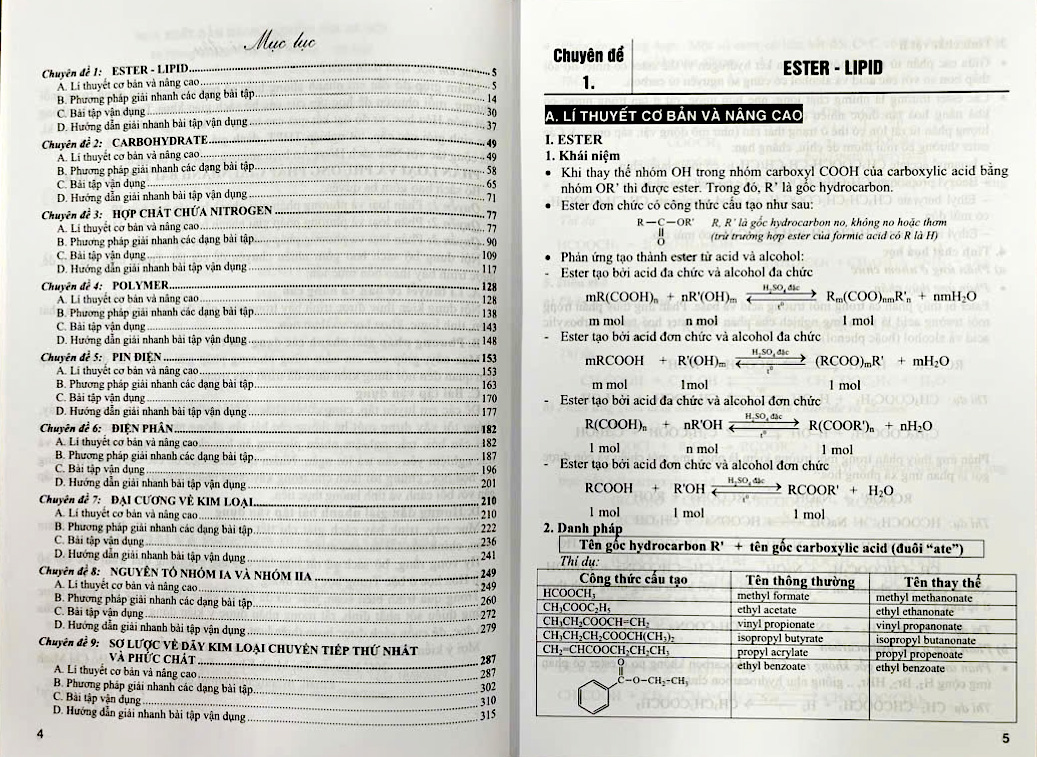 Mục lục
Chuyên đề 1: ESTER - LIPID 5
A. Lí thuyết cơ bản và nâng cao 5
B. Phương pháp giải nhanh các dạng bài tập 14
C. Bài tập vận dụng 30
D. Hướng dẫn giải nhanh bài tập vận dụng 37
Chuyên đề 2: CARBOHYDRATE 49
A. Lí thuyết cơ bản và nâng cao 49
B. Phương pháp giải nhanh các dạng bài tập 58
C. Bài tập vận dụng 65
D. Hướng dẫn giải nhanh bài tập vận dụng 71
Chuyên đề 3: HỢP CHẤT CHỨA NITROGEN 77
A. Lí thuyết cơ bản và nâng cao 77
B. Phương pháp giải nhanh các dạng bài tập 90
C. Bài tập vận dụng 109
D. Hướng dẫn giải nhanh bài tập vận dụng 117
Chuyên đề 4: POLYMER 128
A. Lí thuyết cơ bản và nâng cao 128
B. Phương pháp giải nhanh các dạng bài tập 138
C. Bài tập vận dụng 143
D. Hướng dẫn giải nhanh bài tập vận dụng 148
Chuyên đề 5: PIN ĐIỆN 153
A. Lí thuyết cơ bản và nâng cao 153
B. Phương pháp giải nhanh các dạng bài tập 163
C. Bài tập vận dụng 170
D. Hướng dẫn giải nhanh bài tập vận dụng 177
Chuyên đề 6: ĐIỆN PHÂN 182
A. Lí thuyết cơ bản và nâng cao 182
B. Phương pháp giải nhanh các dạng bài tập 187
C. Bài tập vận dụng 196
D. Hướng dẫn giải nhanh bài tập vận dụng 201
Chuyên đề 7: ĐẠI CƯƠNG VỀ KIM LOẠI 210
A. Lí thuyết cơ bản và nâng cao 210
B. Phương pháp giải nhanh các dạng bài tập 222
C. Bài tập vận dụng 236
D. Hướng dẫn giải nhanh bài tập vận dụng 241
Chuyên đề 8: NGUYÊN TỐ NHÓM IA VÀ NHÓM IIA 249
A. Lí thuyết cơ bản và nâng cao 249
B. Phương pháp giải nhanh các dạng bài tập 260
C. Bài tập vận dụng 272
D. Hướng dẫn giải nhanh bài tập vận dụng 279
Chuyên đề 9: SƠ LƯỢC VỀ DÃY KIM LOẠI CHUYỂN TIẾP THỨ NHẤT
VÀ PHỨC CHẤT 287
A. Lí thuyết cơ bản và nâng cao 287
B. Phương pháp giải nhanh các dạng bài tập 302
C. Bài tập vận dụng 310
D. Hướng dẫn giải nhanh bài tập vận dụng 315
4
Chuyên đề
1.
ESTER - LIPID
A. LÍ THUYẾT CƠ BẢN VÀ NÂNG CAO
I. ESTER
1. Khái niệm
• Khi thay thế nhóm OH trong nhóm carboxyl COOH của carboxylic acid bằng
nhóm OR' thì được ester. Trong đó, R' là gốc hydrocarbon.
• Ester đơn chức có công thức cấu tạo như sau:
R–C–OR' R, R' là gốc hydrocarbon no, không no hoặc thơm
O (trừ trường hợp ester của formic acid có R là H)
• Phản ứng tạo thành ester từ acid và alcohol:
- Ester tạo bởi acid đa chức và alcohol đa chức
mR(COOH)n + nR'(OH)m ⇌ (H2SO4 đặc, t°) Rm(COO)nmR'n + nmH2O
m mol n mol 1 mol
- Ester tạo bởi acid đơn chức và alcohol đa chức
mRCOOH + R'(OH)m ⇌ (H2SO4 đặc, t°) (RCOO)mR' + mH2O
m mol 1mol 1 mol
- Ester tạo bởi acid đa chức và alcohol đơn chức
R(COOH)n + nR'OH ⇌ (H2SO4 đặc, t°) R(COOR')n + nH2O
1 mol n mol 1 mol
- Ester tạo bởi acid đơn chức và alcohol đơn chức
RCOOH + R'OH ⇌ (H2SO4 đặc, t°) RCOOR' + H2O
1 mol 1 mol 1 mol
2. Danh pháp
Tên gốc hydrocarbon R' + tên gốc carboxylic acid (đuôi “ate”)
Thí dụ:
Công thức cấu tạo Tên thông thường Tên thay thế
HCOOCH3 methyl formate methyl methanonate
CH3COOC2H5 ethyl acetate ethyl ethanonate
CH3CH2COOCH=CH2 vinyl propionate vinyl propanonate
CH3CH2CH2COOCH(CH3)2 isopropyl butyrate isopropyl butanonate
CH2=CHCOOCH2CH2CH3 propyl acrylate propyl propenoate
O
C–O–CH2–CH3 ethyl benzoate ethyl benzoate
5